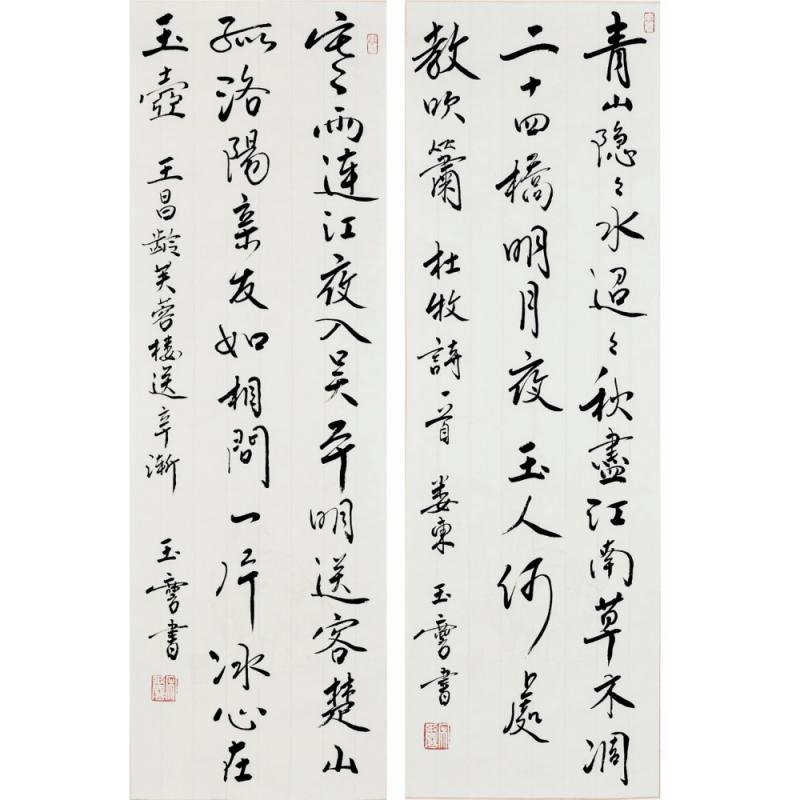 青山隐々水迢々秋盡江南草木凋
二十四橋明月夜玉人何處
教吹簫 杜牧詩一首 娄東 玉書
寒雨連江夜入吴平明送客楚山
孤洛陽亲友如相問一片冰心在
玉壺 王昌龄芙蓉楼送辛漸 玉書